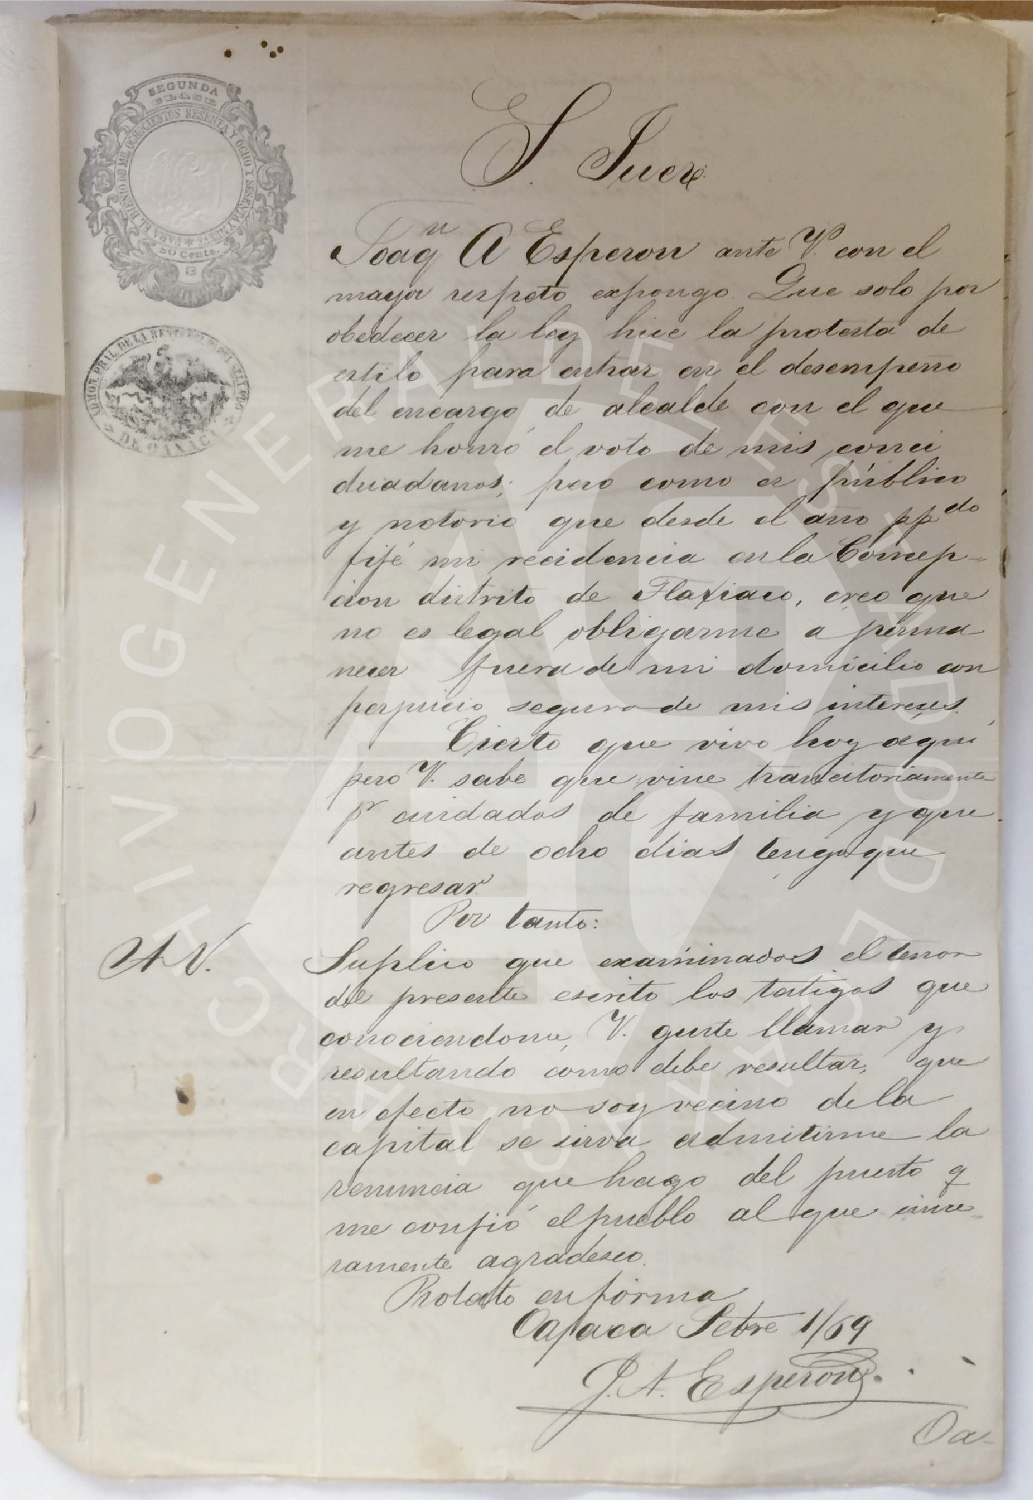 SEGUNDA
PARA EL BIENIO DE MIL OCHOCIENTOS SESENTA Y OCHO Y SESENTA Y NUEVE
50 Cents.
ADMON PRAL. DE LA RENTA DEL PAPEL SELLADO
DE OAXACA
S. Juez
Joaqn A Esperon ante V. con el
mayor respeto expongo. Que solo por
obedecer la ley hice la protesta de
estilo para entrar en el desempeño
del encargo de alcalde con el que
me honró el voto de mis conci
duadanos; pero como es público
y notorio que desde el año ppdo
fijé mi recidencia en la Concep-
cion distrito de Tlaxiaco, creo que
no es legal obligarme a perma
necer fuera de mi domicilio con
perjuicio seguro de mis intereses.
Cierto que vivo hoy aquí
pero V. sabe que vine transitoriamente
pr cuidados de familia y que
antes de ocho dias tengo que
regresar
Por tanto:
A V. Suplico que examinados el tenor
del presente escrito los testigos que
conociendome, V. guste llamar y
resultando como debe resultar, que
en efecto no soy vecino de la
capital se sirva admitirme la
renuncia que hago del puesto q
me confió el pueblo al que since-
ramente agradesco.
Protesto en forma
Oajaca Setbre 1/69
J. A. Esperon
Oa-
ARCHIVO GENERAL DEL ESTADO DE OAXACA